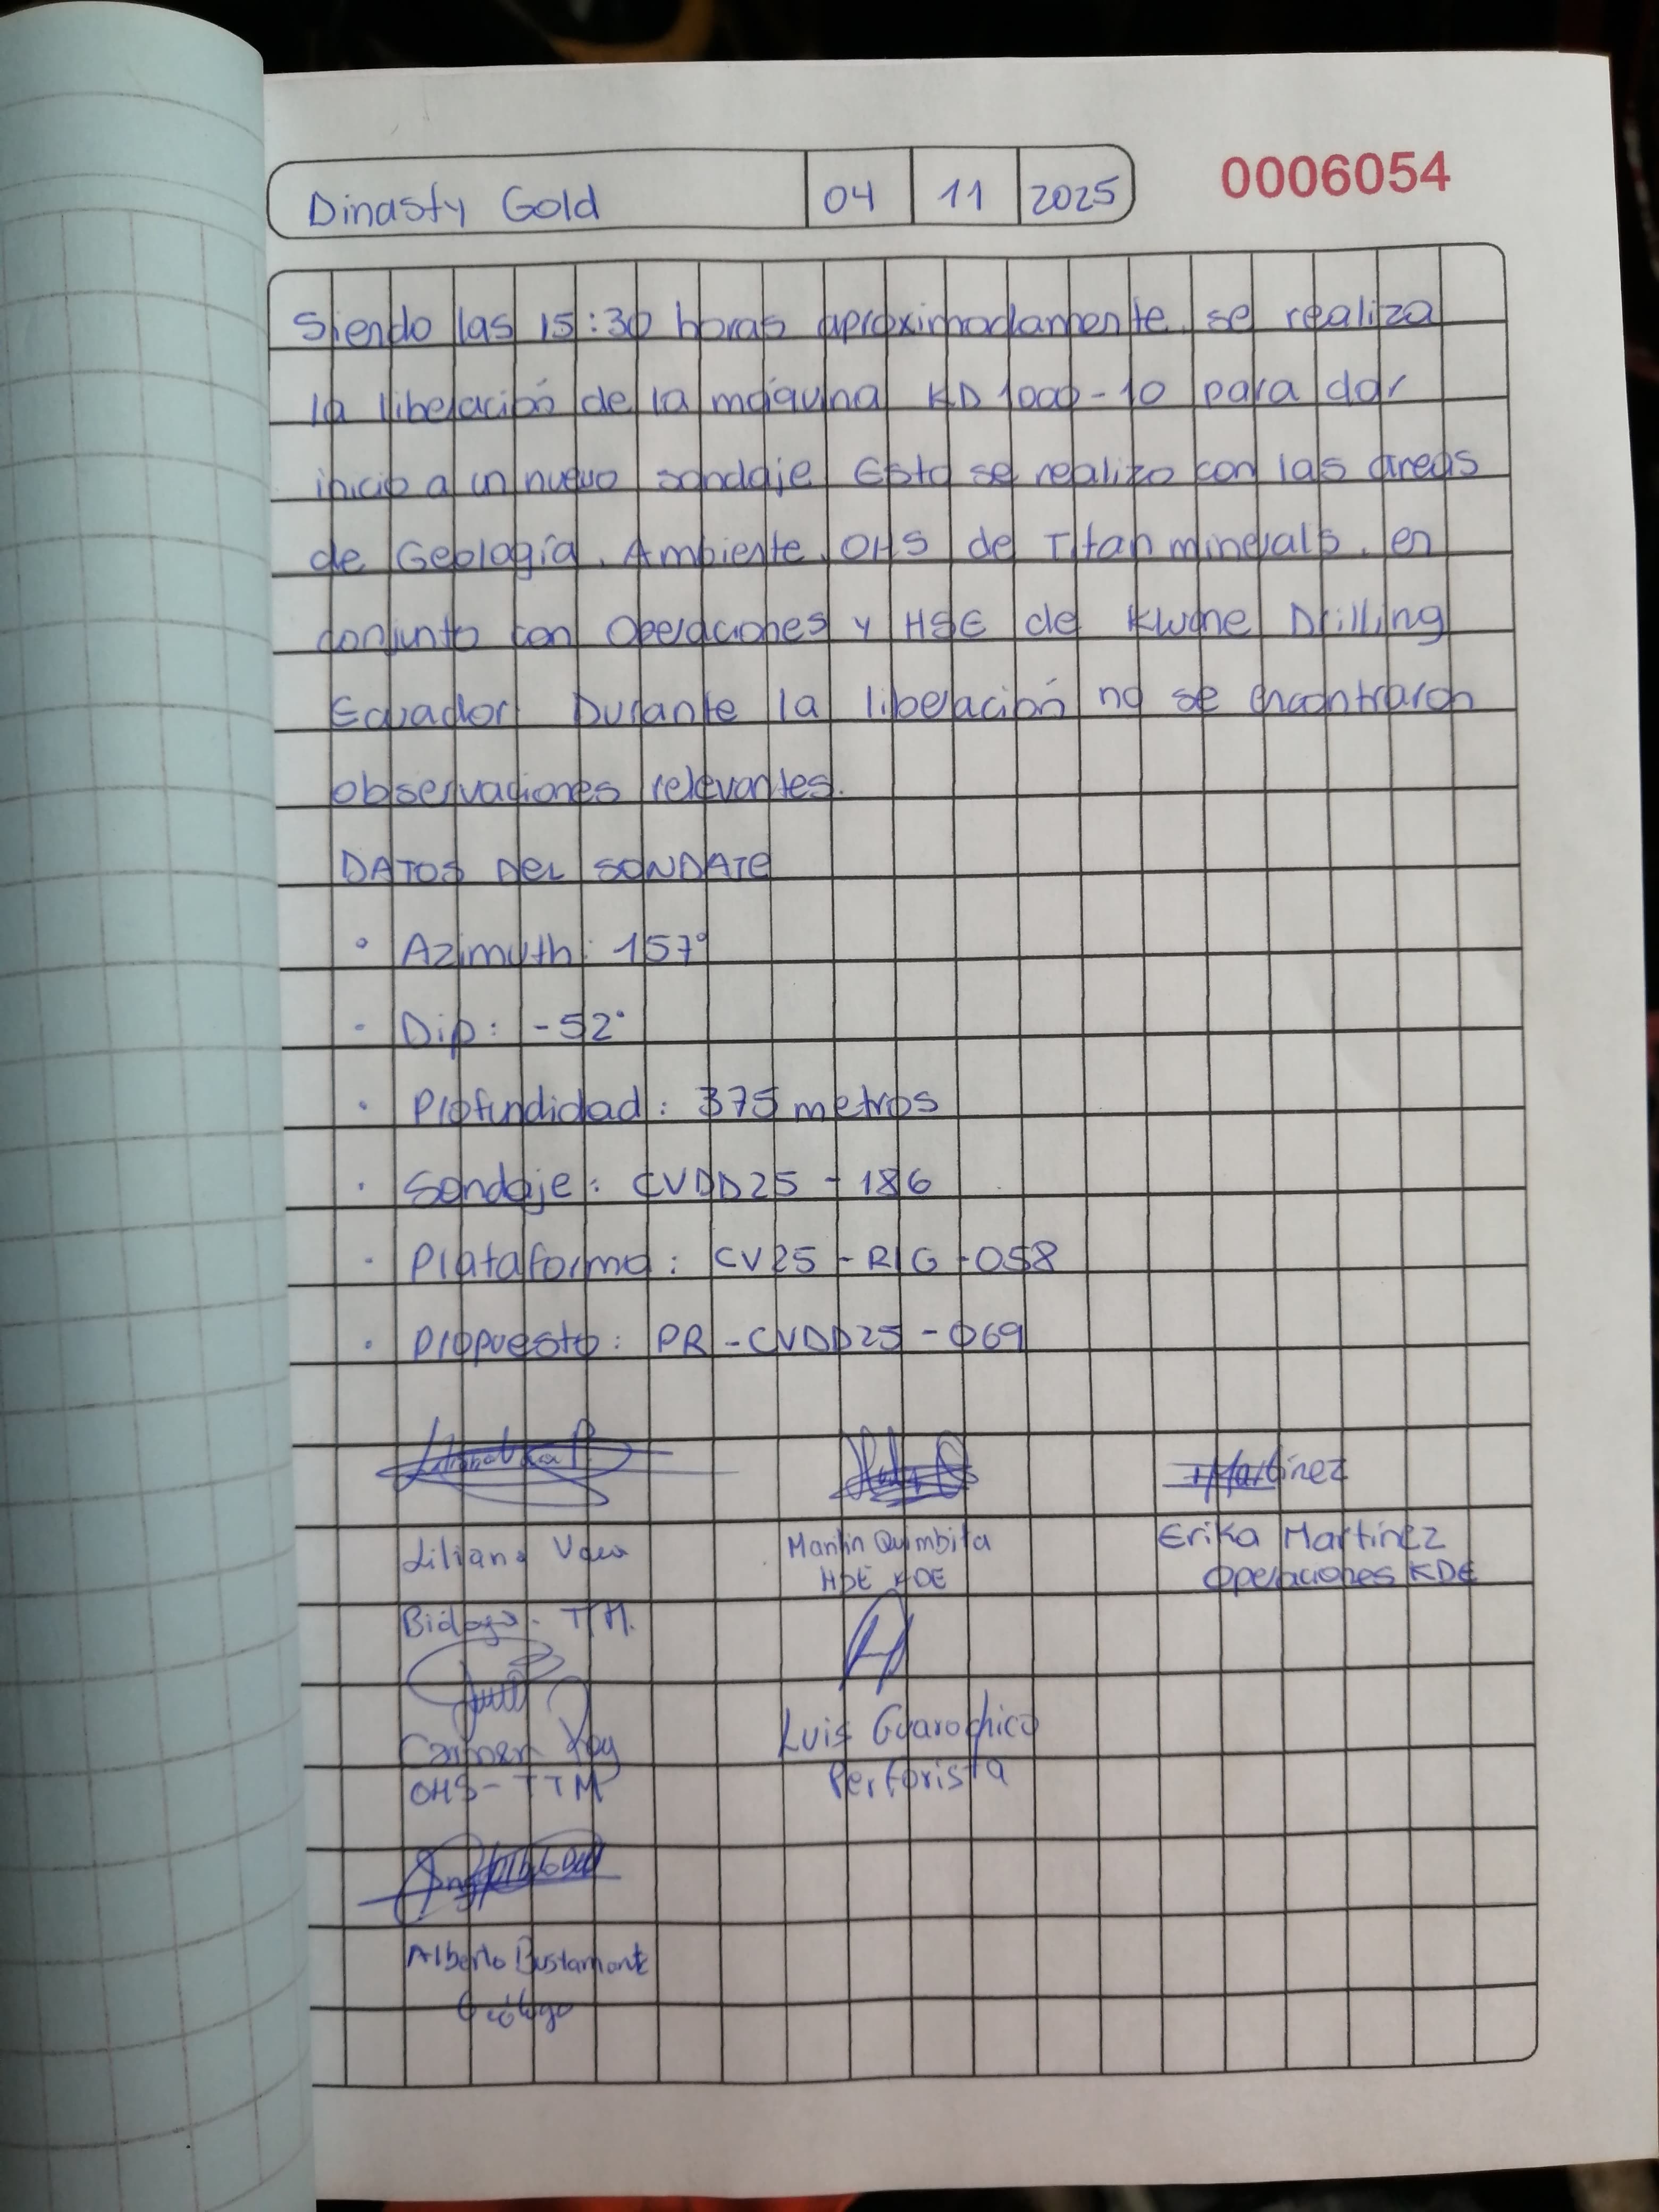 Dinasty Gold 04 11 2025 0006054
Siendo las 15:30 horas aproximadamente se realiza
la liberación de la máquina KD 1000-10 para dar
inicio a un nuevo sondaje. Esto se realizo con las áreas
de Geología, Ambiente, OHS de Titan minerals, en
conjunto con Operaciones y HSE de Kluane Drilling
Ecuador. Durante la liberación no se encontraron
observaciones relevantes.
DATOS DEL SONDAJE
• Azimuth: 157°
- Dip: -52°
• Profundidad: 375 metros
• Sondaje: CVDD25-186
• Plataforma: CV25-RIG-058
• Propuesto: PR-CVDD25-069
Martinez
Liliana Marlin Quimbita Erika Martínez
HSE KDE Operaciones KDE
TTM.
Carmen
Luis Guarochico
OHS-TTM Perforista
Alberto Bustamante
Geólogo